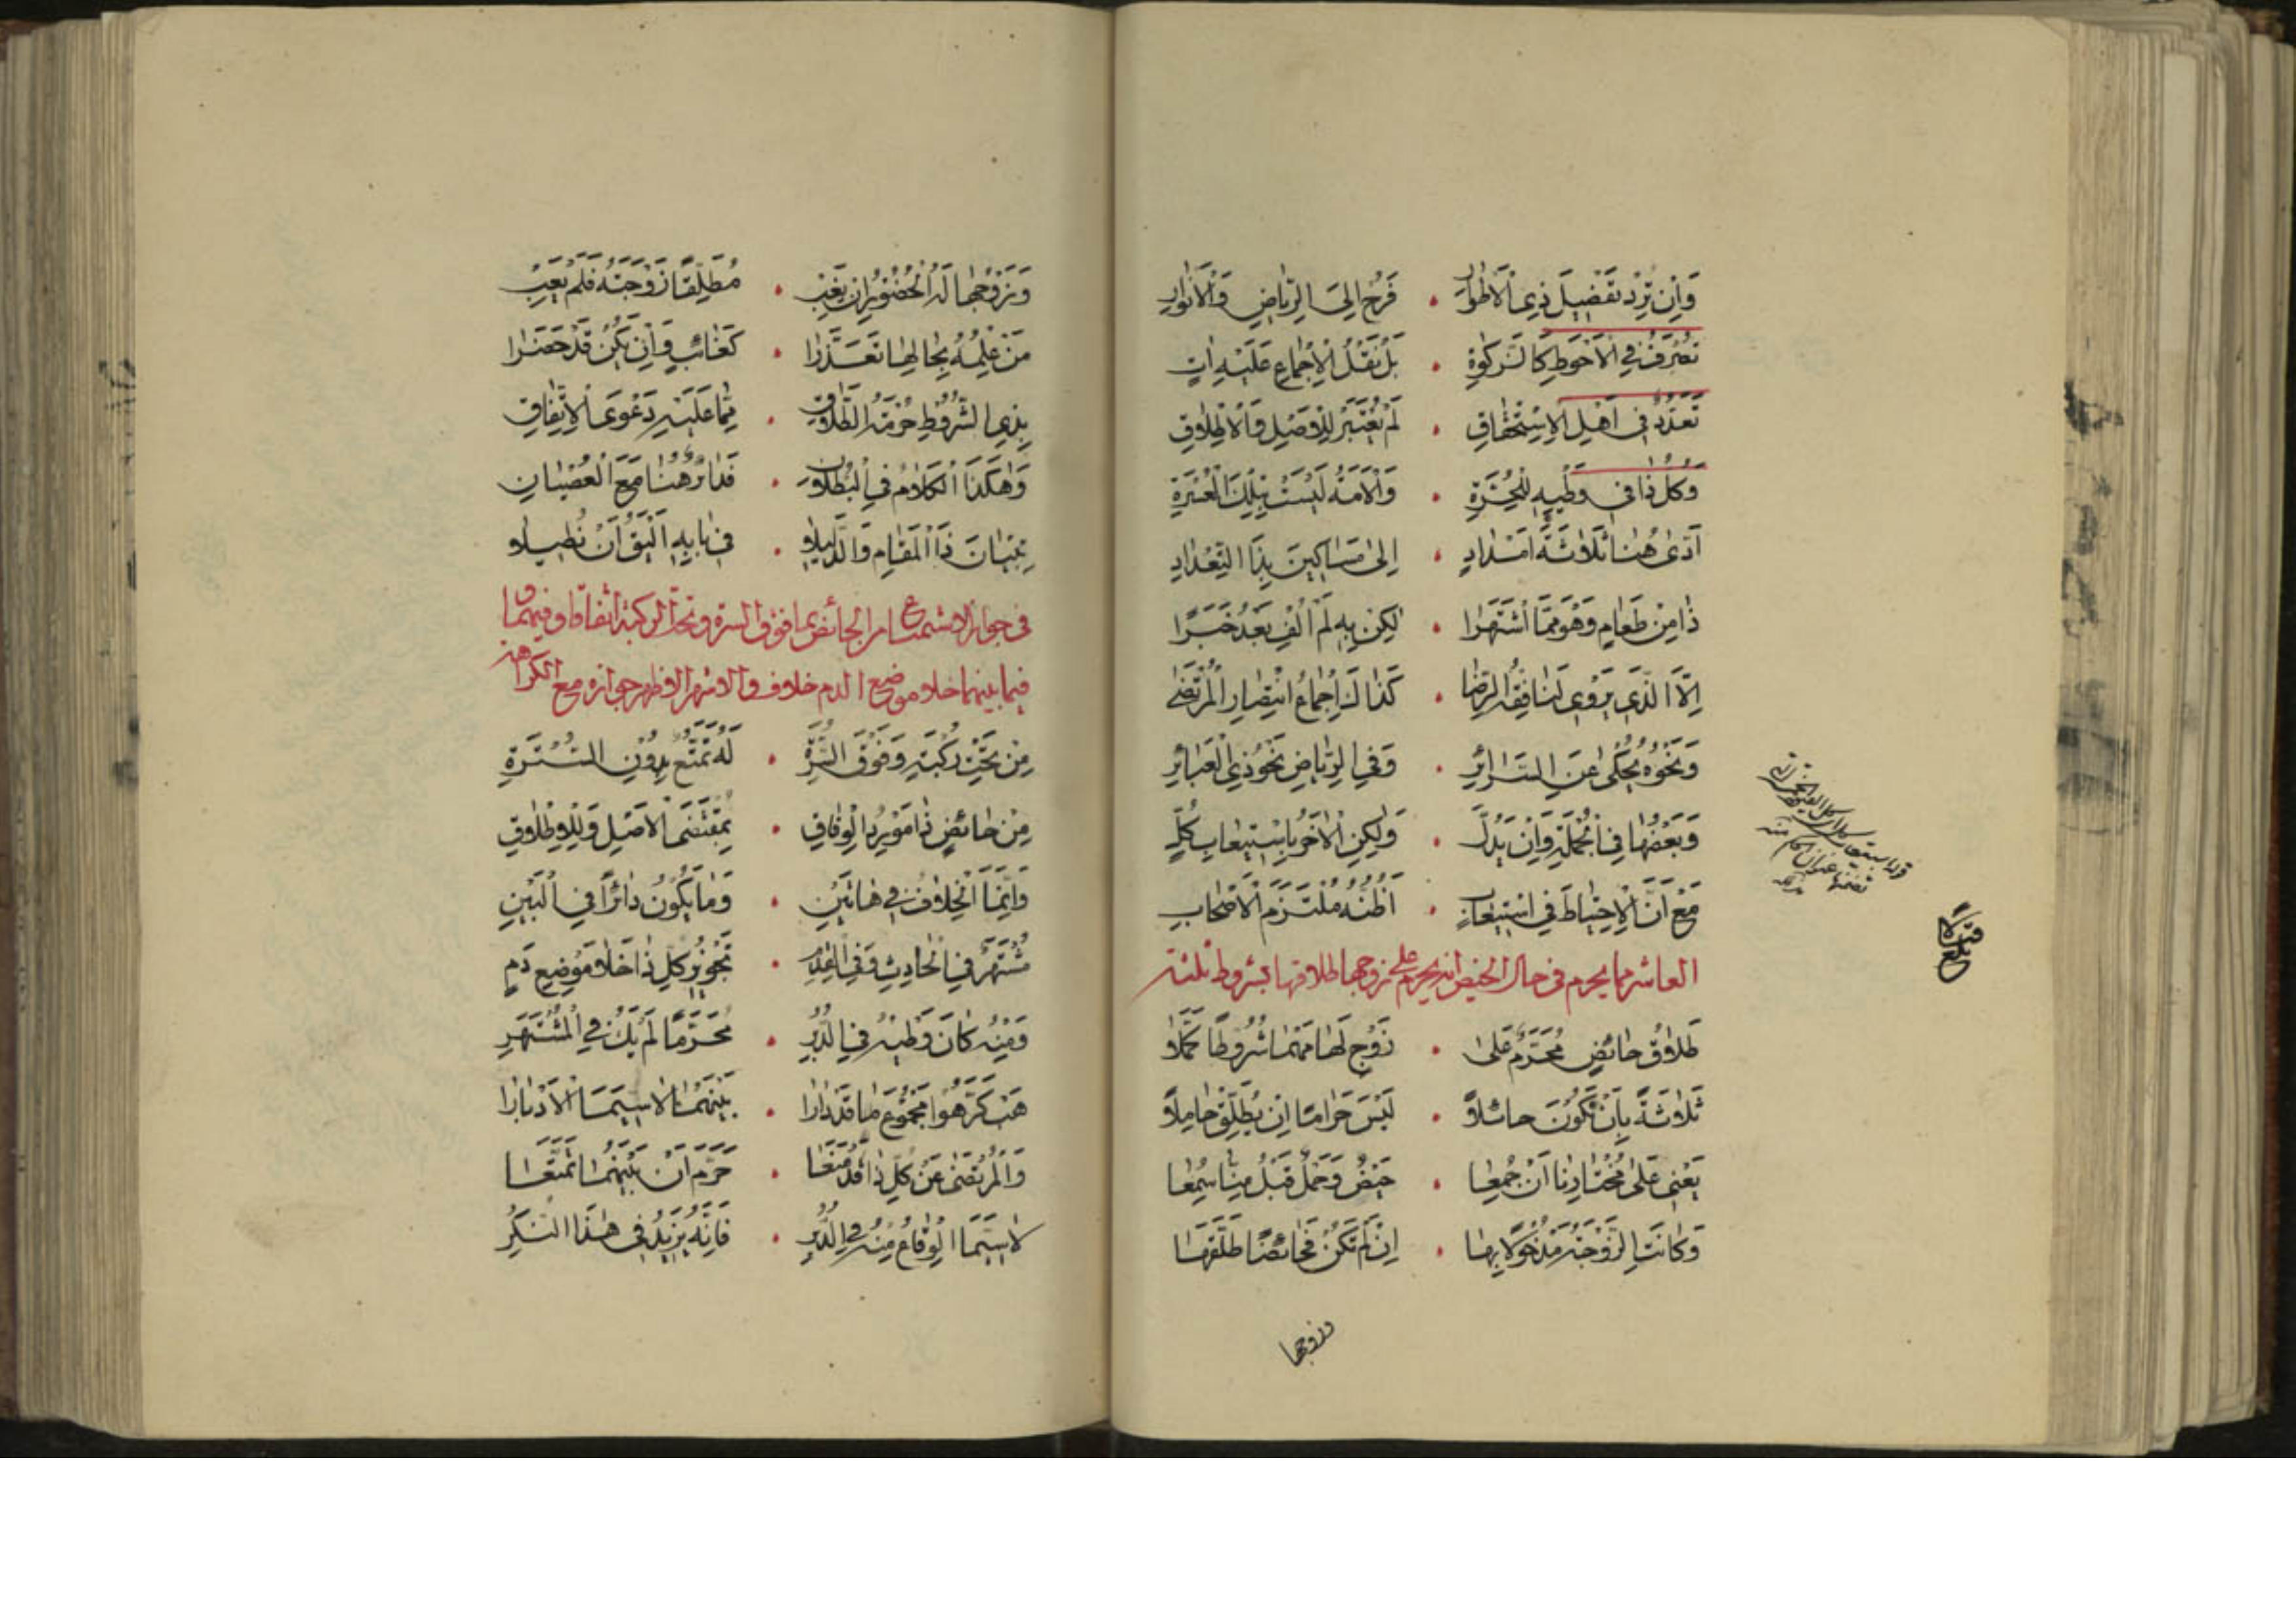 وَاِنْ تُرِدْ تَفْضِيلَ ذِي الْاَطْوَارِ • فَرُحْ اِلَى الرِّيَاضِ وَالْاَنْوَارِ
تُصْرَفُ فِي الْاَحْوَطِ كَالزَّكٰوةِ • بَلْ نَقْلُ الْاِجْمَاعِ عَلَيْهِ اٰتٍ
تَعَدُّدٌ فِي اَهْلِ الْاِسْتِحْقَاقِ • لَمْ يُعْتَبَرْ لِلْاَصْلِ وَالْاِطْلَاقِ
وَكُلُّ ذَا فِي وَطْيِهِ لِلْحُرَّةِ • وَالْاَمَةُ لَيْسَتْ بِتِلْكَ
اَدّٰى هُنَا ثَلَاثَةَ اَمْدَادٍ • اِلٰى مَسَاكِينَ بِذَا التِّعْدَادِ
ذَا مِنْ طَعَامٍ وَهُوَ مِمَّا اشْتَهَرَا • لٰكِنْ بِهِ لَمْ اُلْفِ بَعْدُ خَبَرًا
اِلَّا الَّذِي يَرْوِي لَنَا فِقْهُ الرِّضَا • كَذَا لَهُ اِجْمَاعُ انْتِصَارِ الْمُرْتَضٰى
وَنَحْوُهُ يُحْكٰى عَنِ السَّرَائِرِ • وَفِي الرِّيَاضِ نَحْوُ ذِي الْعَبَائِرِ
وَبَعْضُهَا فِي الْجُمْلَةِ وَاِنْ يَدُلَّ • وَلٰكِنِ الْاٰخَرُ بِاسْتِيعَابِ كُلٍّ
مَعَ اَنَّ الْاِحْتِيَاطَ فِي اسْتِيعَابٍ • اَظُنُّهُ مُلْتَزَمَ الْاَصْحَابِ
العاشر مما يحرم في حال الحيض انه يحرم على زوجها طلاقها بشروط ثلثة
طَلَاقُ حَائِضٍ مُحَرَّمٌ عَلٰى • زَوْجٍ لَهَا مَهْمَا شُرُوطًا كَمَّلَا
ثَلَاثَةً بِاَنْ تَكُونَ حَائِلًا • لَيْسَ حَرَامًا اِنْ يُطَلِّقْ حَامِلًا
يَعْنِي عَلٰى مُخْتَارِنَا اَنْ جُمِعَا • حَيْضٌ وَحَمْلٌ قَبْلُ مِنَّا سُمِعَا
وَكَانَتِ الزَّوْجَةُ مَدْخُولًا بِهَا • اِنْ لَمْ تَكُنْ فَحَائِضًا طَلَّقَهَا
وزوجها
بلغ
وَزَوْجُهَا لَهُ الْحُضُورُ اِنْ يَغِبْ • مُطَلِّقًا زَوْجَتَهُ فَلَمْ يُعَبْ
مَنْ عِلْمُهُ بِحَالِهَا تَعَذَّرَا • كَغَائِبٍ وَاِنْ يَكُنْ قَدْ حَضَرَا
بِذِي الشُّرُوطِ حُرْمَةُ الطَّلَاقِ • مِمَّا عَلَيْهِ دَعْوَى الْاِتِّفَاقِ
وَهٰكَذَا الْكَلَامُ فِي الْبُطْلَانِ • فَدَائِرٌ هُنَا مَعَ الْعِصْيَانِ
تِبْيَانَ ذَا الْمَقَامِ وَالدَّلِيلَا • فِي بَابِهِ اَلْيَقُ اَنْ نُطِيلَا
في جواز الاستمتاع من الحائض بما فوق السرة وتحت الركبة اتفاقا وفيهما و
فيما بينهما خلا موضع الدم خلاف والاشهر الاظهر جوازه مع الكراهة
مِنْ تَحْتِ رُكْبَةٍ وَفَوْقَ السُّرَّةِ • لَهُ تَمَتُّعٌ بِدُونِ السُّتْرَةِ
مِنْ حَائِضٍ ذَا مَوْرِدُ الْوِفَاقِ • بِمُقْتَضَى الْاَصْلِ وَلِلْاِطْلَاقِ
وَاِنَّمَا الْخِلَافُ فِي هَاتَيْنِ • وَمَا يَكُونُ دَائِرًا فِي الْبَيْنِ
مُشْتَهَرٌ فِي الْحَادِثِ وَفِي • تَجْوِيزُ كُلِّ ذَا خَلَا مَوْضِعِ دَمٍ
وَمِنْهُ كَانَ وَطْيُهُ فِي الدُّبُرِ • مُحَرَّمًا لَمْ يَكُ فِي الْمُشْتَهَرِ
هَبْ كَرِهُوا مَجْمُوعَ مَا قَدْ دَارَا • بَيْنَهُمَا لَا سِيَّمَا الْاَدْبَارَا
وَالْمُرْتَضٰى عَنْ كُلِّ ذَا قَدْ مَنَعَا • حَرَّمَ اَنْ بَيْنَهُمَا تَمَتَّعَا
لَا سِيَّمَا الْوِقَاعُ مِنْهُ فِي الدُّبُرِ • فَاِنَّهُ يَزِيدُ فِي هٰذَا النُّكُرِ